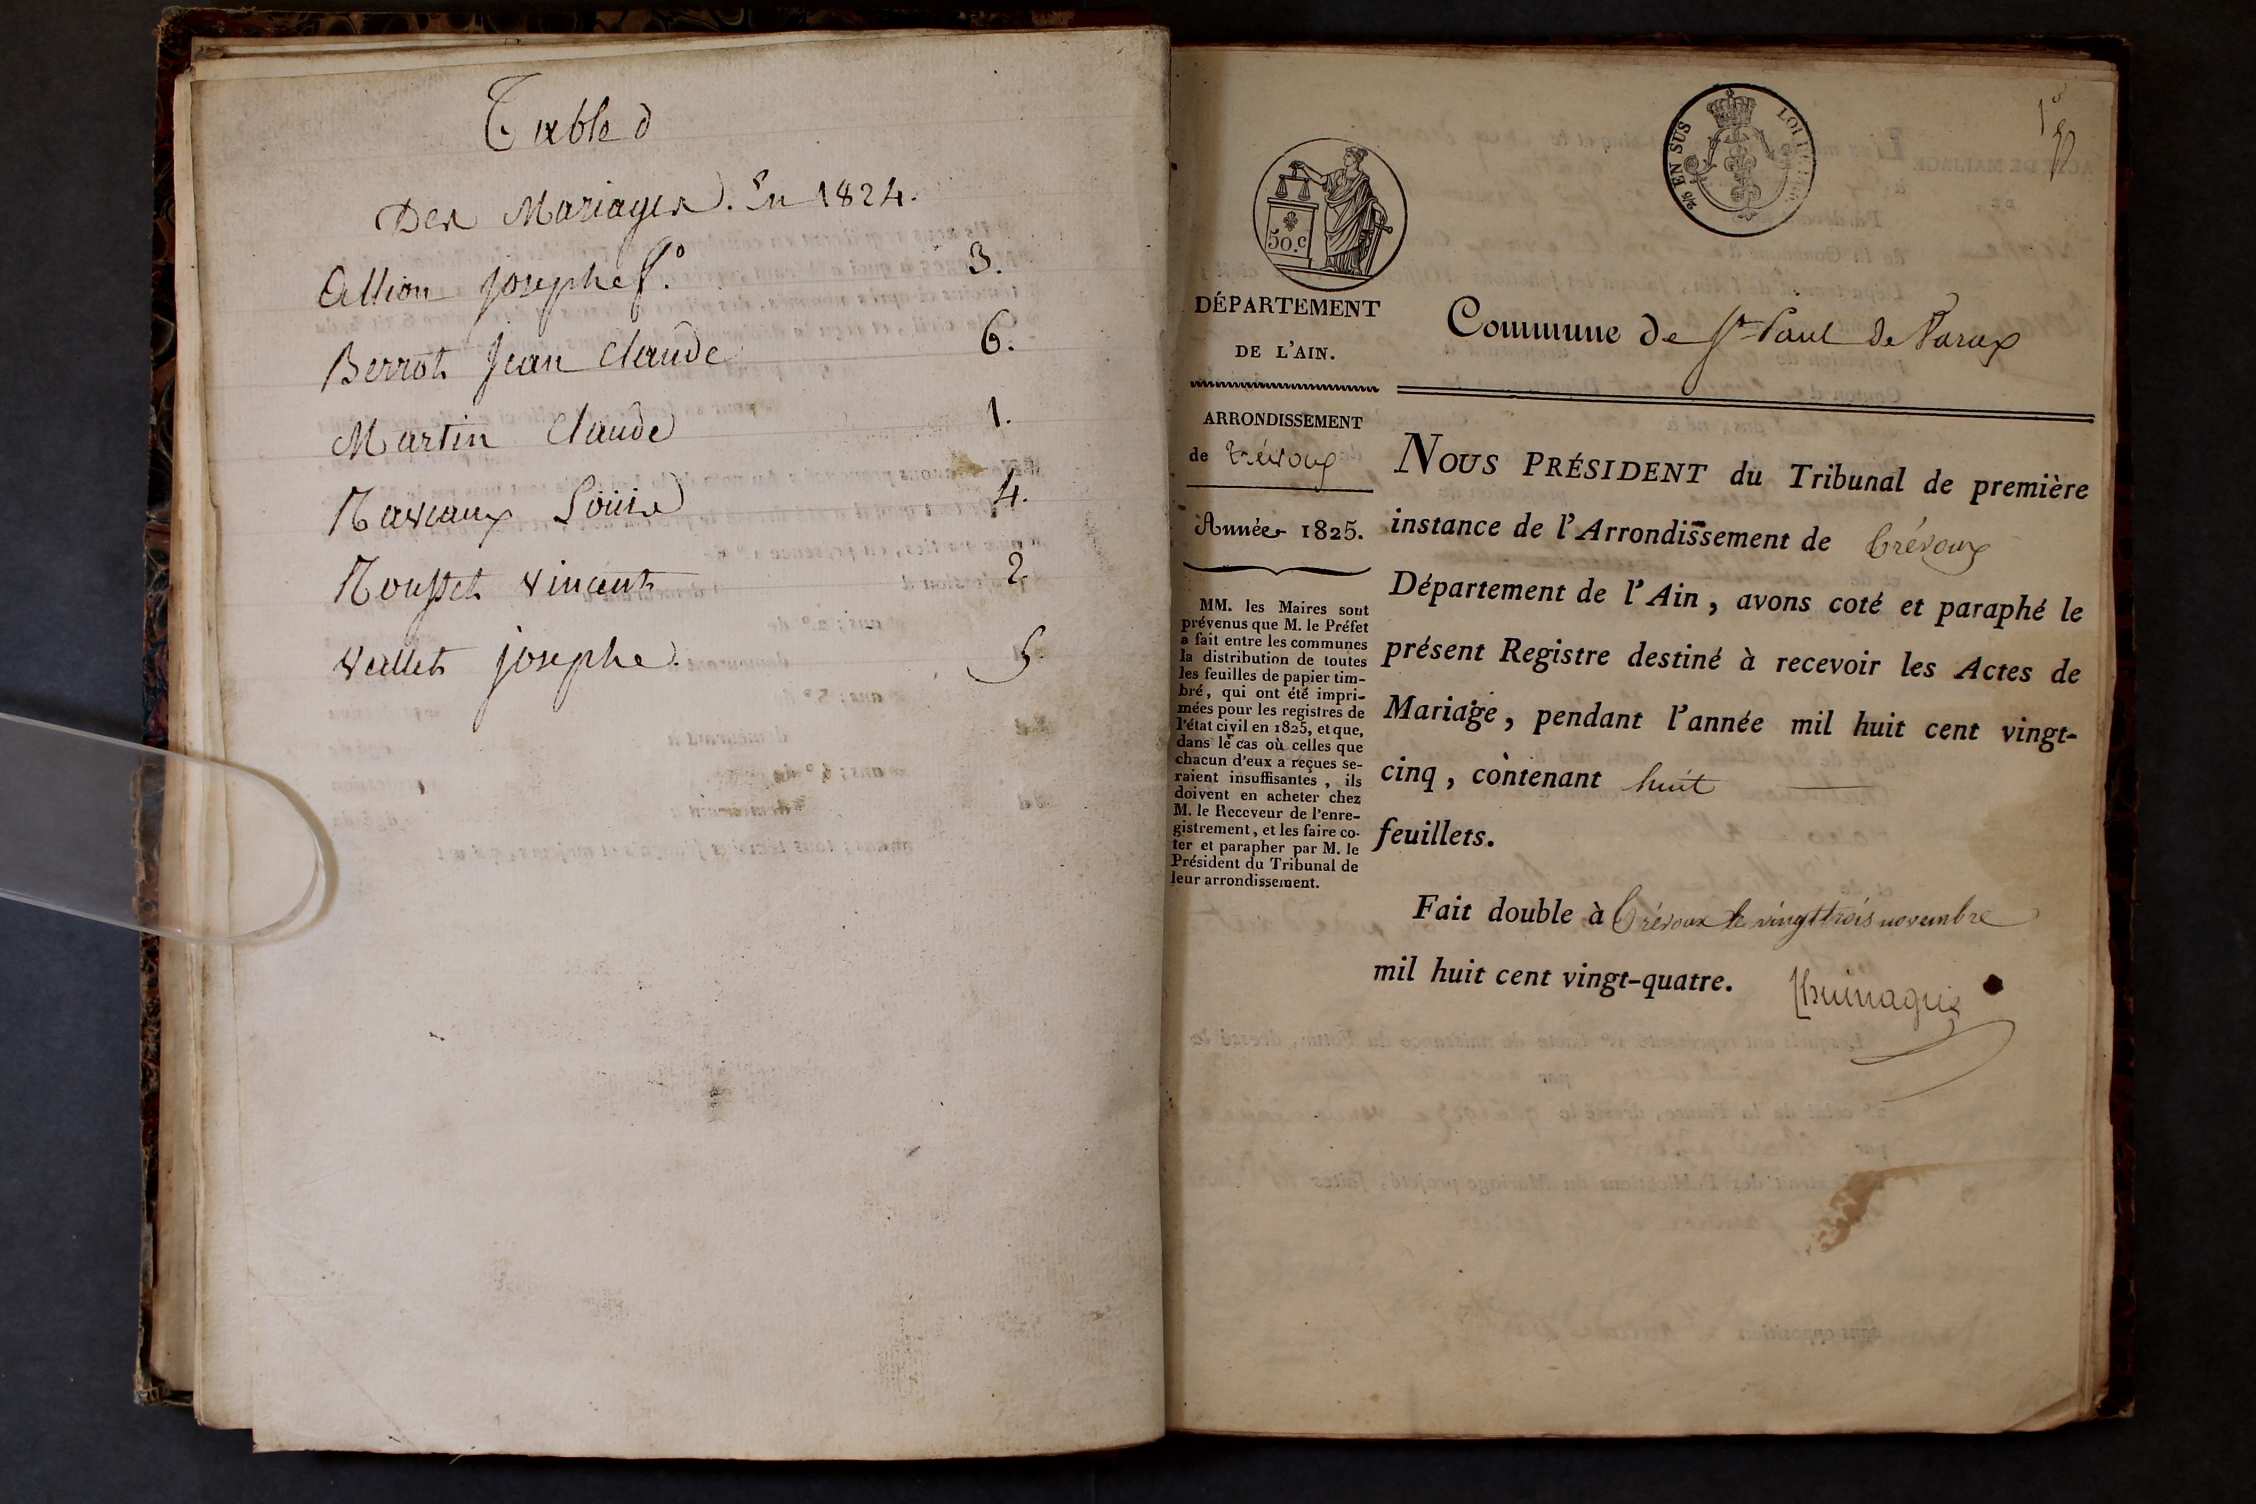 Table
Des Mariages. En 1824.
Allion josephe f.º 3.
Berrot Jean Claude 6.
Martin Claude 1.
Raviaux Louis 4.
Rousset Vincent 2
Vallet josephe. 5.
2/10 EN SUS
LOI
50.c
DÉPARTEMENT
DE L'AIN.
ARRONDISSEMENT
de trévoux
Année 1825.
MM. les Maires sont
prévenus que M. le Préfet
a fait entre les communes
la distribution de toutes
les feuilles de papier tim-
bré, qui ont été impri-
mées pour les registres de
l'état civil en 1825, et que,
dans le cas où celles que
chacun d'eux a reçues se-
raient insuffisantes, ils
doivent en acheter chez
M. le Receveur de l'enre-
gistrement, et les faire co-
ter et parapher par M. le
Président du Tribunal de
leur arrondissement.
Commune de St Paul de Varax
NOUS PRÉSIDENT du Tribunal de première
instance de l'Arrondissement de trévoux
Département de l'Ain, avons coté et paraphé le
présent Registre destiné à recevoir les Actes de
Mariage, pendant l'année mil huit cent vingt-
cinq, contenant huit
feuillets.
Fait double à trévoux le vingt trois novembre
mil huit cent vingt-quatre.